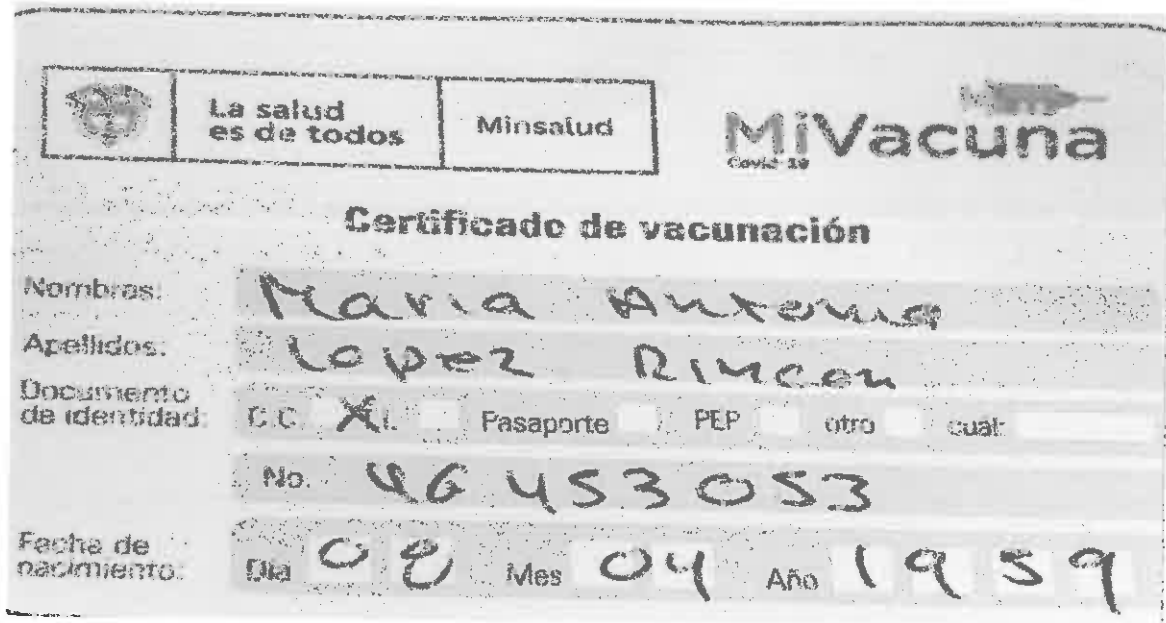 La salud
es de todos
Minsalud
MiVacuna
Covid-19
Certificado de vacunación
Nombres: Maria Antonia
Apellidos: Lopez Rincon
Documento
de identidad: C.C. X I. Pasaporte PEP otro cuál:
No. 46453053
Fecha de
nacimiento: Día 08 Mes 04 Año 1959